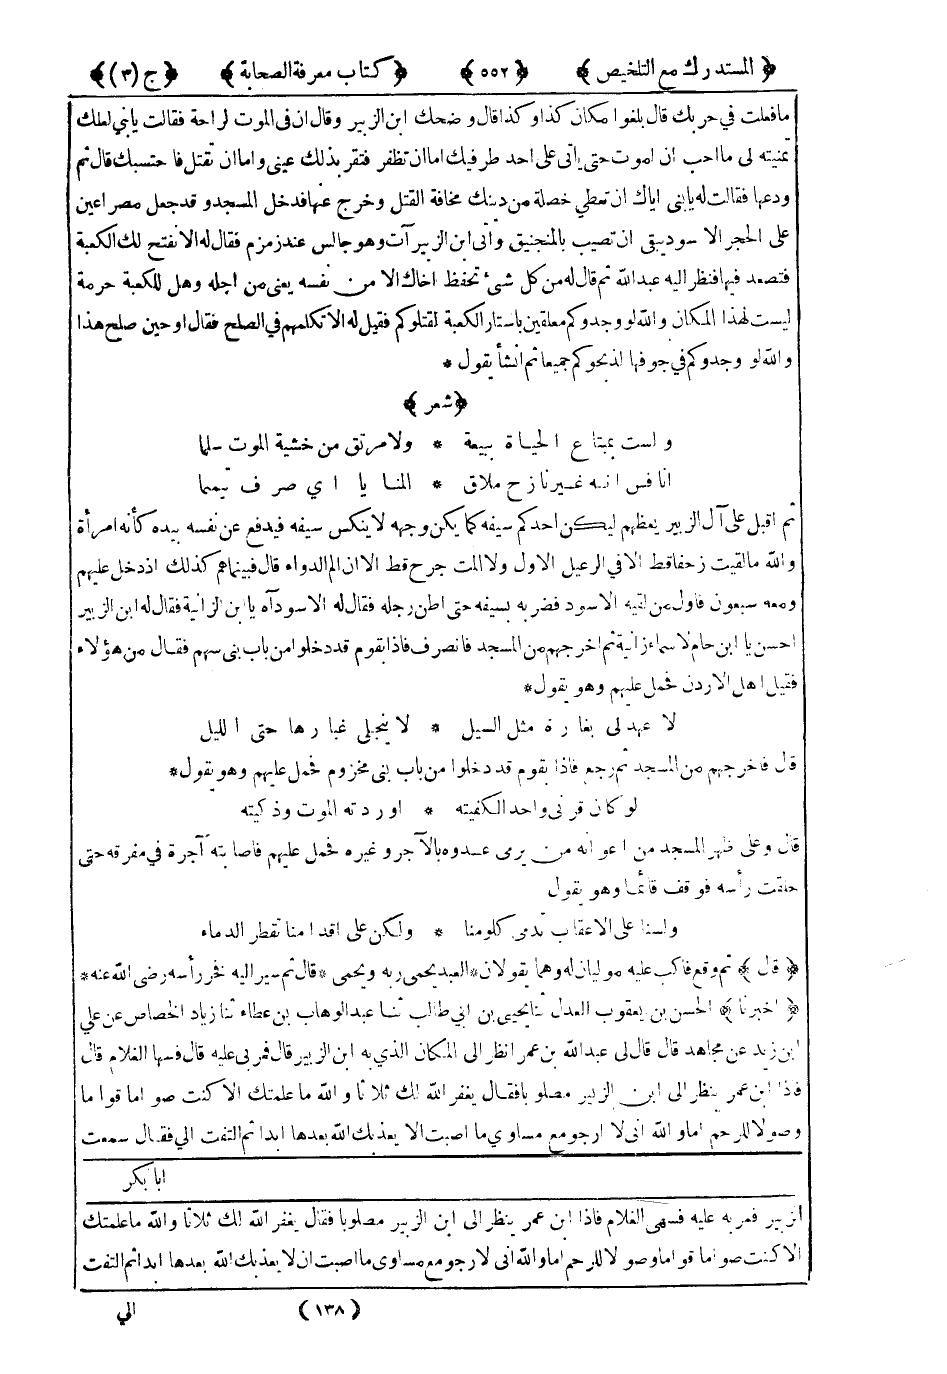 ﴿ المستدرك مع التلخيص ﴾ ﴿ ٥٥٢ ﴾ ﴿ كتاب معرفة الصحابة ﴾ ﴿ ج (٣) ﴾
مافعلت في حربك قال بلغوا مكان كذا وكذا قال وضحك ابن الزبير وقال ان فى الموت لراحة فقالت يابني لعلك
تمنيته لى ما احب ان اموت حتى ياتى على احد طرفيك اما ان تظفر فتقر بذلك عيني واما ان تقتل فاحتسبك قال ثم
ودعها فقالت له يابنى اياك ان تعطي خصلة من دينك مخافة القتل وخرج عنها فدخل المسجد وقد جعل مصراعين
على الحجر الاسود يتقى ان تصيب بالمنجنيق واتى ابن الزبير آت وهو جالس عند زمزم فقال له الا نفتح لك الكعبة
فتصعد فيها فنظر اليه عبدالله ثم قال له من كل شئ تحفظ اخاك الا من نفسه يعنى من اجله وهل للكعبة حرمة
ليست لهذا المكان والله لو وجدوكم معلقين باستار الكعبة لقتلوكم فقيل له الا تكلمهم في الصلح فقال او حين صلح هذا
والله لو وجدوكم في جوفها لذبحوكم جميعا ثم انشأ يقول *
﴿ شعر ﴾
ولست بمبتاع الحياة ببيعة * ولا مرتق من خشية الموت سلما
انافس انه غيرنازح ملاق * المنايا اي صرف تيمما
ثم اقبل على آل الزبير يعظهم ليكن احدكم سيفه كما يكن وجهه لا ينكس سيفه فيدفع عن نفسه بيده كأنه امرأة
والله مالقيت زحفا قط الا في الرعيل الاول ولا المت جرح قط الا ان الم الدواء قال فبينماهم كذلك اذ دخل عليهم
ومعه سبعون فاول من لقيه الاسود فضربه بسيفه حتى اطن رجله فقال له الاسود آه يا ابن الزانية فقال له ابن الزبير
احسن يا ابن حام لاسماء زانية ثم اخرجهم من المسجد فانصرف فاذا بقوم قد دخلوا من باب بنى سهم فقال من هؤلاء
فقيل اهل الاردن فحمل عليهم وهو يقول *
لا عهد لى بغارة مثل السيل * لا ينجلي غبارها حتى الليل
قال فاخرجهم من المسجد ثم رجع فاذا بقوم قد دخلوا من باب بنى مخزوم فحمل عليهم وهو يقول *
لو كان قرنى واحد الكفيته * اوردته الموت وذكيته
قال وعلى ظهر المسجد من اعوانه من يرمى عدوه بالآجر وغيره فحمل عليهم فاصابته آجرة في مفرقه حتى
حلقت رأسه فوقف قائما وهو يقول
ولسنا على الاعقاب تدمى كلومنا * ولكن على اقدامنا تقطر الدماء
﴿ قال ﴾ ثم وقع فاكب عليه موليان له وهما يقولان * العبد يحمى ربه ويحمى * قال ثم سير اليه فحز رأسه رضى الله عنه *
﴿ اخبرنا ﴾ الحسن بن يعقوب العدل ثنا يحيى بن ابي طالب ثنا عبدالوهاب بن عطاء ثنا زياد الخصاص عن علي
ابن زيد عن مجاهد قال قال لى عبدالله بن عمر انظر الى المكان الذي به ابن الزبير قال فمر بى عليه قال فسها الغلام قال
فاذا ابن عمر ينظر الى ابن الزبير مصلوبا فقال يغفر الله لك ثلاثا والله ما علمتك الا كنت صواما قواما
وصولا للرحم اما والله انى لا ارجو مع مساوي ما اصبت الا يعذبك الله بعدها ابدا ثم التفت الي فقال سمعت
ابا بكر
الزبير فمر به عليه فسهى الغلام فاذا ابن عمر ينظر الى ابن الزبير مصلوبا فقال يغفر الله لك ثلاثا والله ما علمتك
الا كنت صواما قواما وصولا للرحم اما والله انى لارجو مع مساوى ما اصبت ان لا يعذبك الله بعدها ابدا ثم التفت
(١٣٨) الي